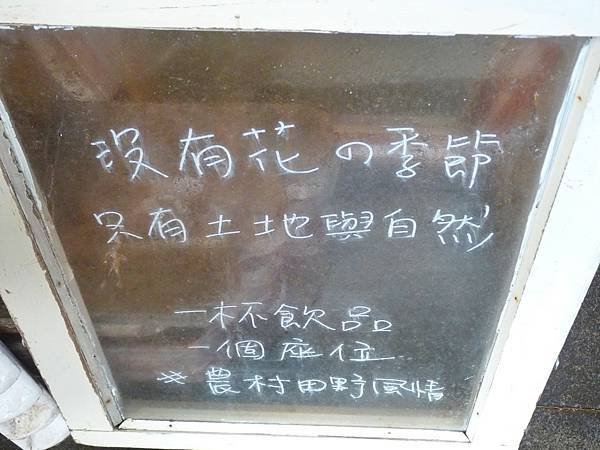 没有花の季節
只有土地與自然
一杯飲品
一個座位
※農村田野風情